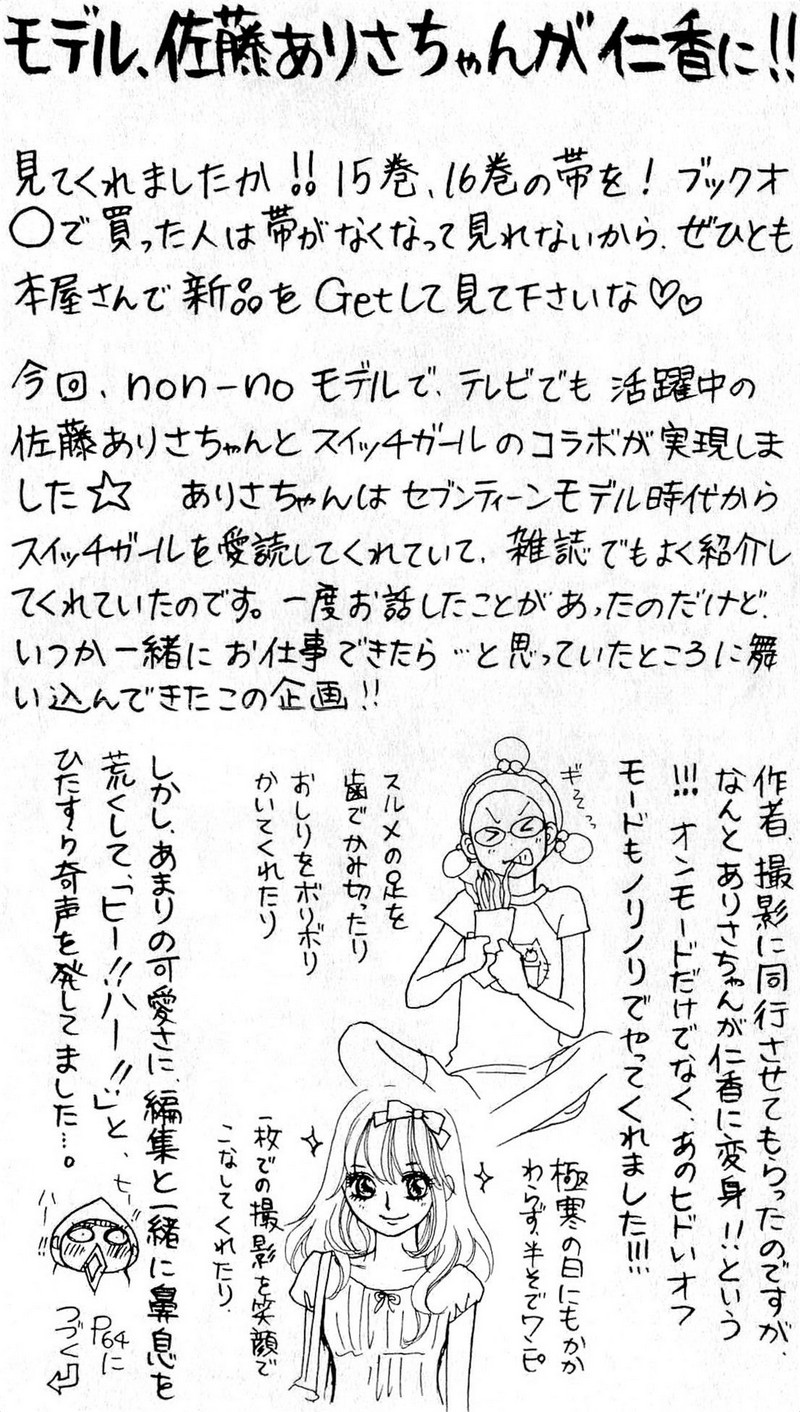 モデル、佐藤ありさちゃんが仁香に!!
見てくれましたか!! 15巻、16巻の帯を! ブックオ
〇で買った人は帯がなくなって見れないから、ぜひとも
本屋さんで新品をGetして見て下さいな♡♡
今回、non-noモデルで、テレビでも活躍中の
佐藤ありさちゃんとスイッチガールのコラボが実現しま
した☆ ありさちゃんはセブンティーンモデル時代から
スイッチガールを愛読してくれていて、雑誌でもよく紹介し
てくれていたのです。一度お話したことがあったのだけど、
いつか一緒にお仕事できたら…と思っていたところに舞
い込んできたこの企画!!
作者、撮影に同行させてもらったのですが、
なんとありさちゃんが仁香に変身!!という
!!! オンモードだけでなく、あのヒドいオフ
モードもノリノリでやってくれました!!!
ギそっ
スルメの足を
歯でかみ切ったり
おしりをボリボリ
かいてくれたり
極寒の日にもかか
わらず、半そでワンピ
一枚での撮影を笑顔で
こなしてくれたり、
しかし、あまりの可愛さに、編集と一緒に鼻息を
荒くして、「ヒー!!ハー!!」と、
ひたすら奇声を発してました…。
ヒー
ハー!!
P64に
つづく